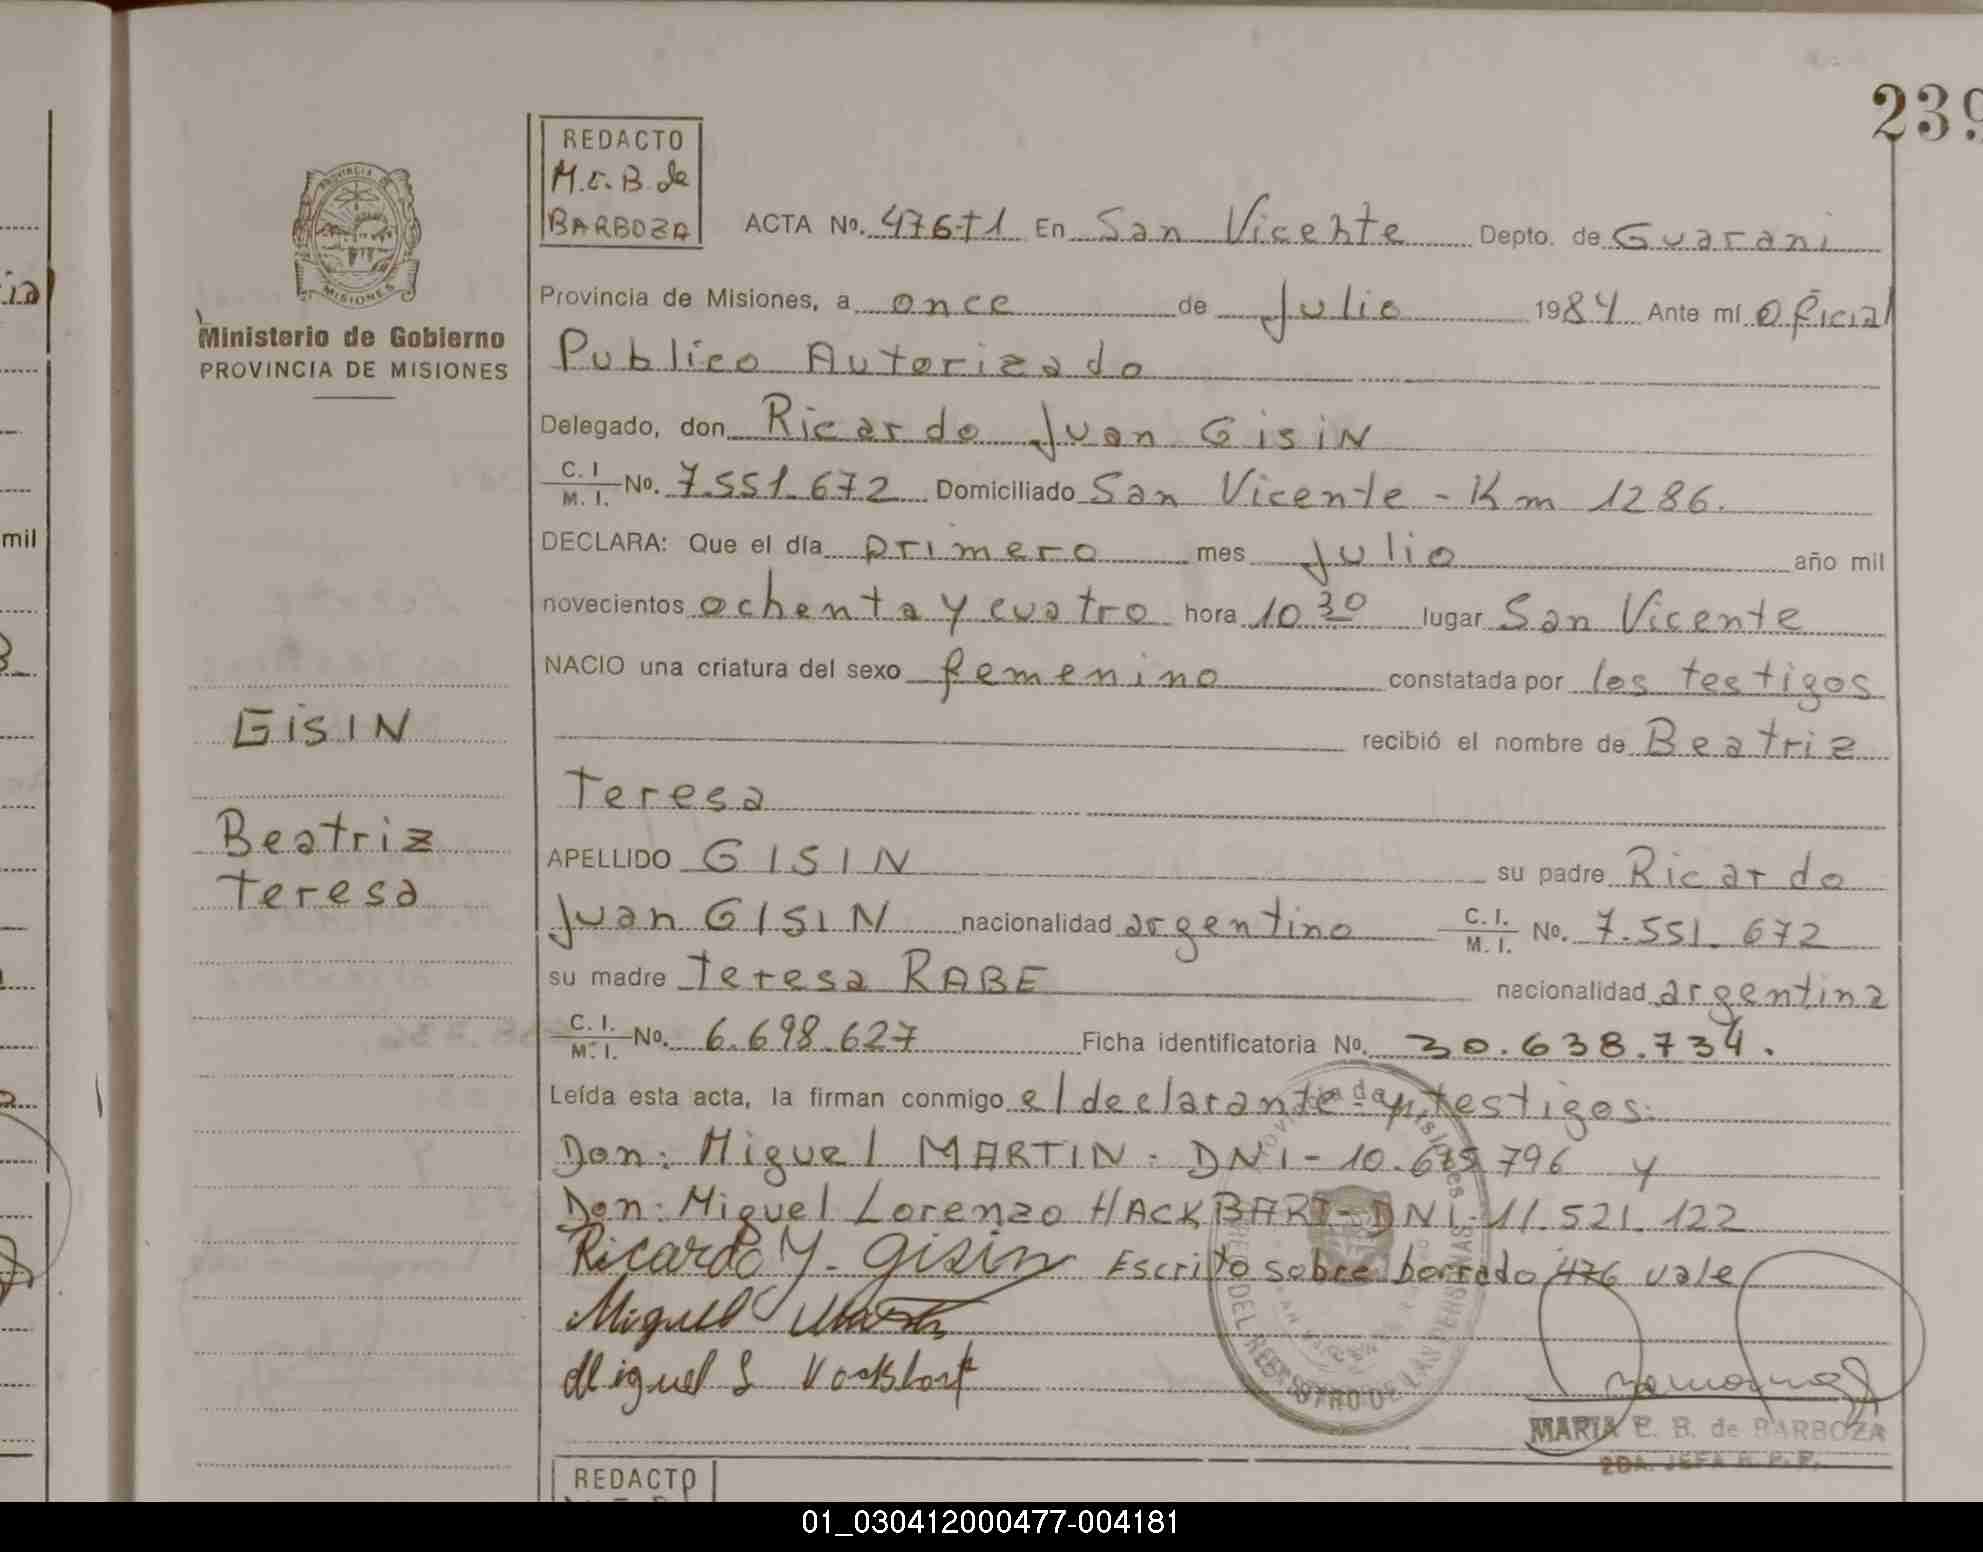 239
REDACTO
M.E.B. de
BARBOZA
PROVINCIA DE
MISIONES
Ministerio de Gobierno
PROVINCIA DE MISIONES
ACTA No. 476 T1 En San Vicente Depto. de Guarani
Provincia de Misiones, a once de Julio 1984 Ante mí Oficial
Publico Autorizado
Delegado, don Ricardo Juan GisiN
C. I. M. I. No. 7.551.672 Domiciliado San Vicente - Km 1286.
DECLARA: Que el día primero mes Julio año mil
novecientos ochenta y cuatro hora 10 30 lugar San Vicente
NACIO una criatura del sexo femenino constatada por los testigos
recibió el nombre de Beatriz
Teresa
APELLIDO GISIN su padre Ricardo
Juan GISIN nacionalidad argentino C. I. M. I. No. 7.551.672
su madre Teresa RABE nacionalidad argentina
C. I. M. I. No. 6.698.627 Ficha identificatoria No. 30.638.734.
Leída esta acta, la firman conmigo el declarante y testigos:
Don: Miguel MARTIN - DNI - 10. 796 y
Don: Miguel Lorenzo HACKBART - DNI - 11.521.122
Ricardo J. Gisin Escrito sobre borrado 476 vale
Miguel
Miguel L
GISIN
Beatriz
Teresa
MARIA E. B. de BARBOZA
2DA. JEFA R. P. P.
REDACTO
mil
01_030412000477-004181